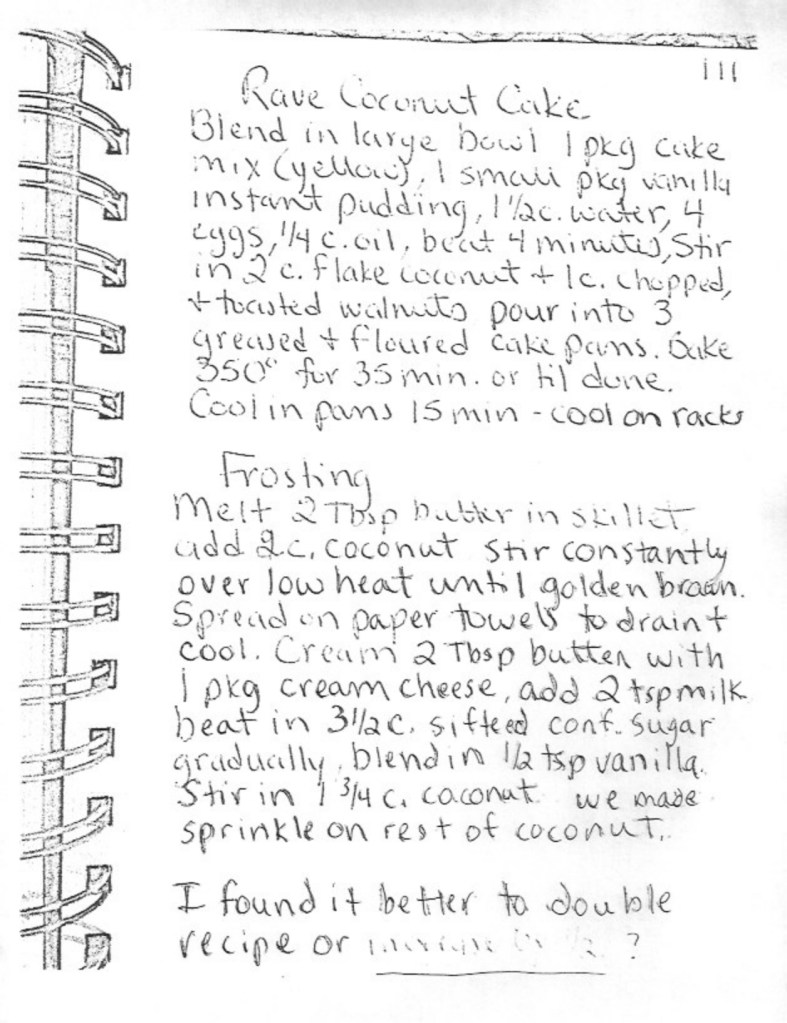 111
Rave Coconut Cake
Blend in large bowl 1 pkg cake
mix (yellow), 1 small pkg vanilla
instant pudding, 1 1/2 c. water, 4
eggs, 1/4 c. oil, beat 4 minutes, Stir
in 2 c. flake coconut + 1c. chopped,
+ toasted walnuts pour into 3
greased + floured cake pans. Bake
350° for 35 min. or til done.
Cool in pans 15 min - cool on racks
Frosting
Melt 2 Tbsp butter in skillet
add 2c. coconut stir constantly
over low heat until golden brown.
Spread on paper towels to drain +
cool. Cream 2 Tbsp butter with
1 pkg cream cheese, add 2 tsp milk
beat in 3 1/2 c. sifteed conf. sugar
gradually, blend in 1/2 tsp vanilla.
Stir in 1 3/4 c. cocanut we made
sprinkle on rest of coconut.
I found it better to double
recipe or ?